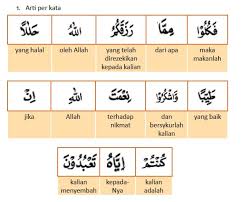 1. Arti per kata
فَكُلُوْا مِمَّا رَزَقَكُمُ اللّٰهُ حَلٰلًا
yang halal oleh Allah yang telah direzekikan kepada kalian dari apa maka makanlah
طَيِّبًا وَّاشْكُرُوْا نِعْمَتَ اللّٰهِ اِنْ
jika Allah terhadap nikmat dan bersykurlah kalian yang baik
كُنْتُمْ اِيَّاهُ تَعْبُدُوْنَ
kalian menyembah kepada-Nya kalian adalah